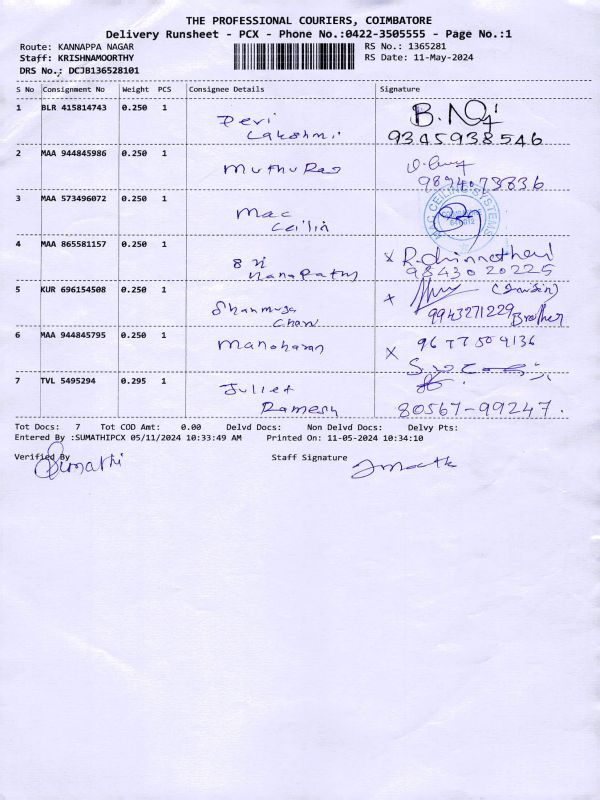 THE PROFESSIONAL COURIERS, COIMBATORE
Delivery Runsheet - PCX - Phone No.:0422-3505555 - Page No.:1
Route: KANNAPPA NAGAR RS No.: 1365281
Staff: KRISHNAMOORTHY RS Date: 11-May-2024
DRS No.: DCJB136528101
S No Consignment No Weight PCS Consignee Details Signature
1 BLR 415814743 0.250 1
Devi
Lakshmi
9345938546
2 MAA 944845986 0.250 1
Muthu Rao
9894073836
3 MAA 573496072 0.250 1
Mac
Ceilin
MAC CEILING SYSTEMS
4 MAA 865581157 0.250 1
98430 20225
5 KUR 696154508 0.250 1
Shanmuga
9943271229 Brother
6 MAA 944845795 0.250 1
Manoharan
96 77 50 9136
7 TVL 5495294 0.295 1
Juliet
Ramesh
80567-99247.
Tot Docs: 7 Tot COD Amt: 0.00 Delvd Docs: Non Delvd Docs: Delvy Pts:
Entered By :SUMATHIPCX 05/11/2024 10:33:49 AM Printed On: 11-05-2024 10:34:10
Verified By Staff Signature
Sumathi